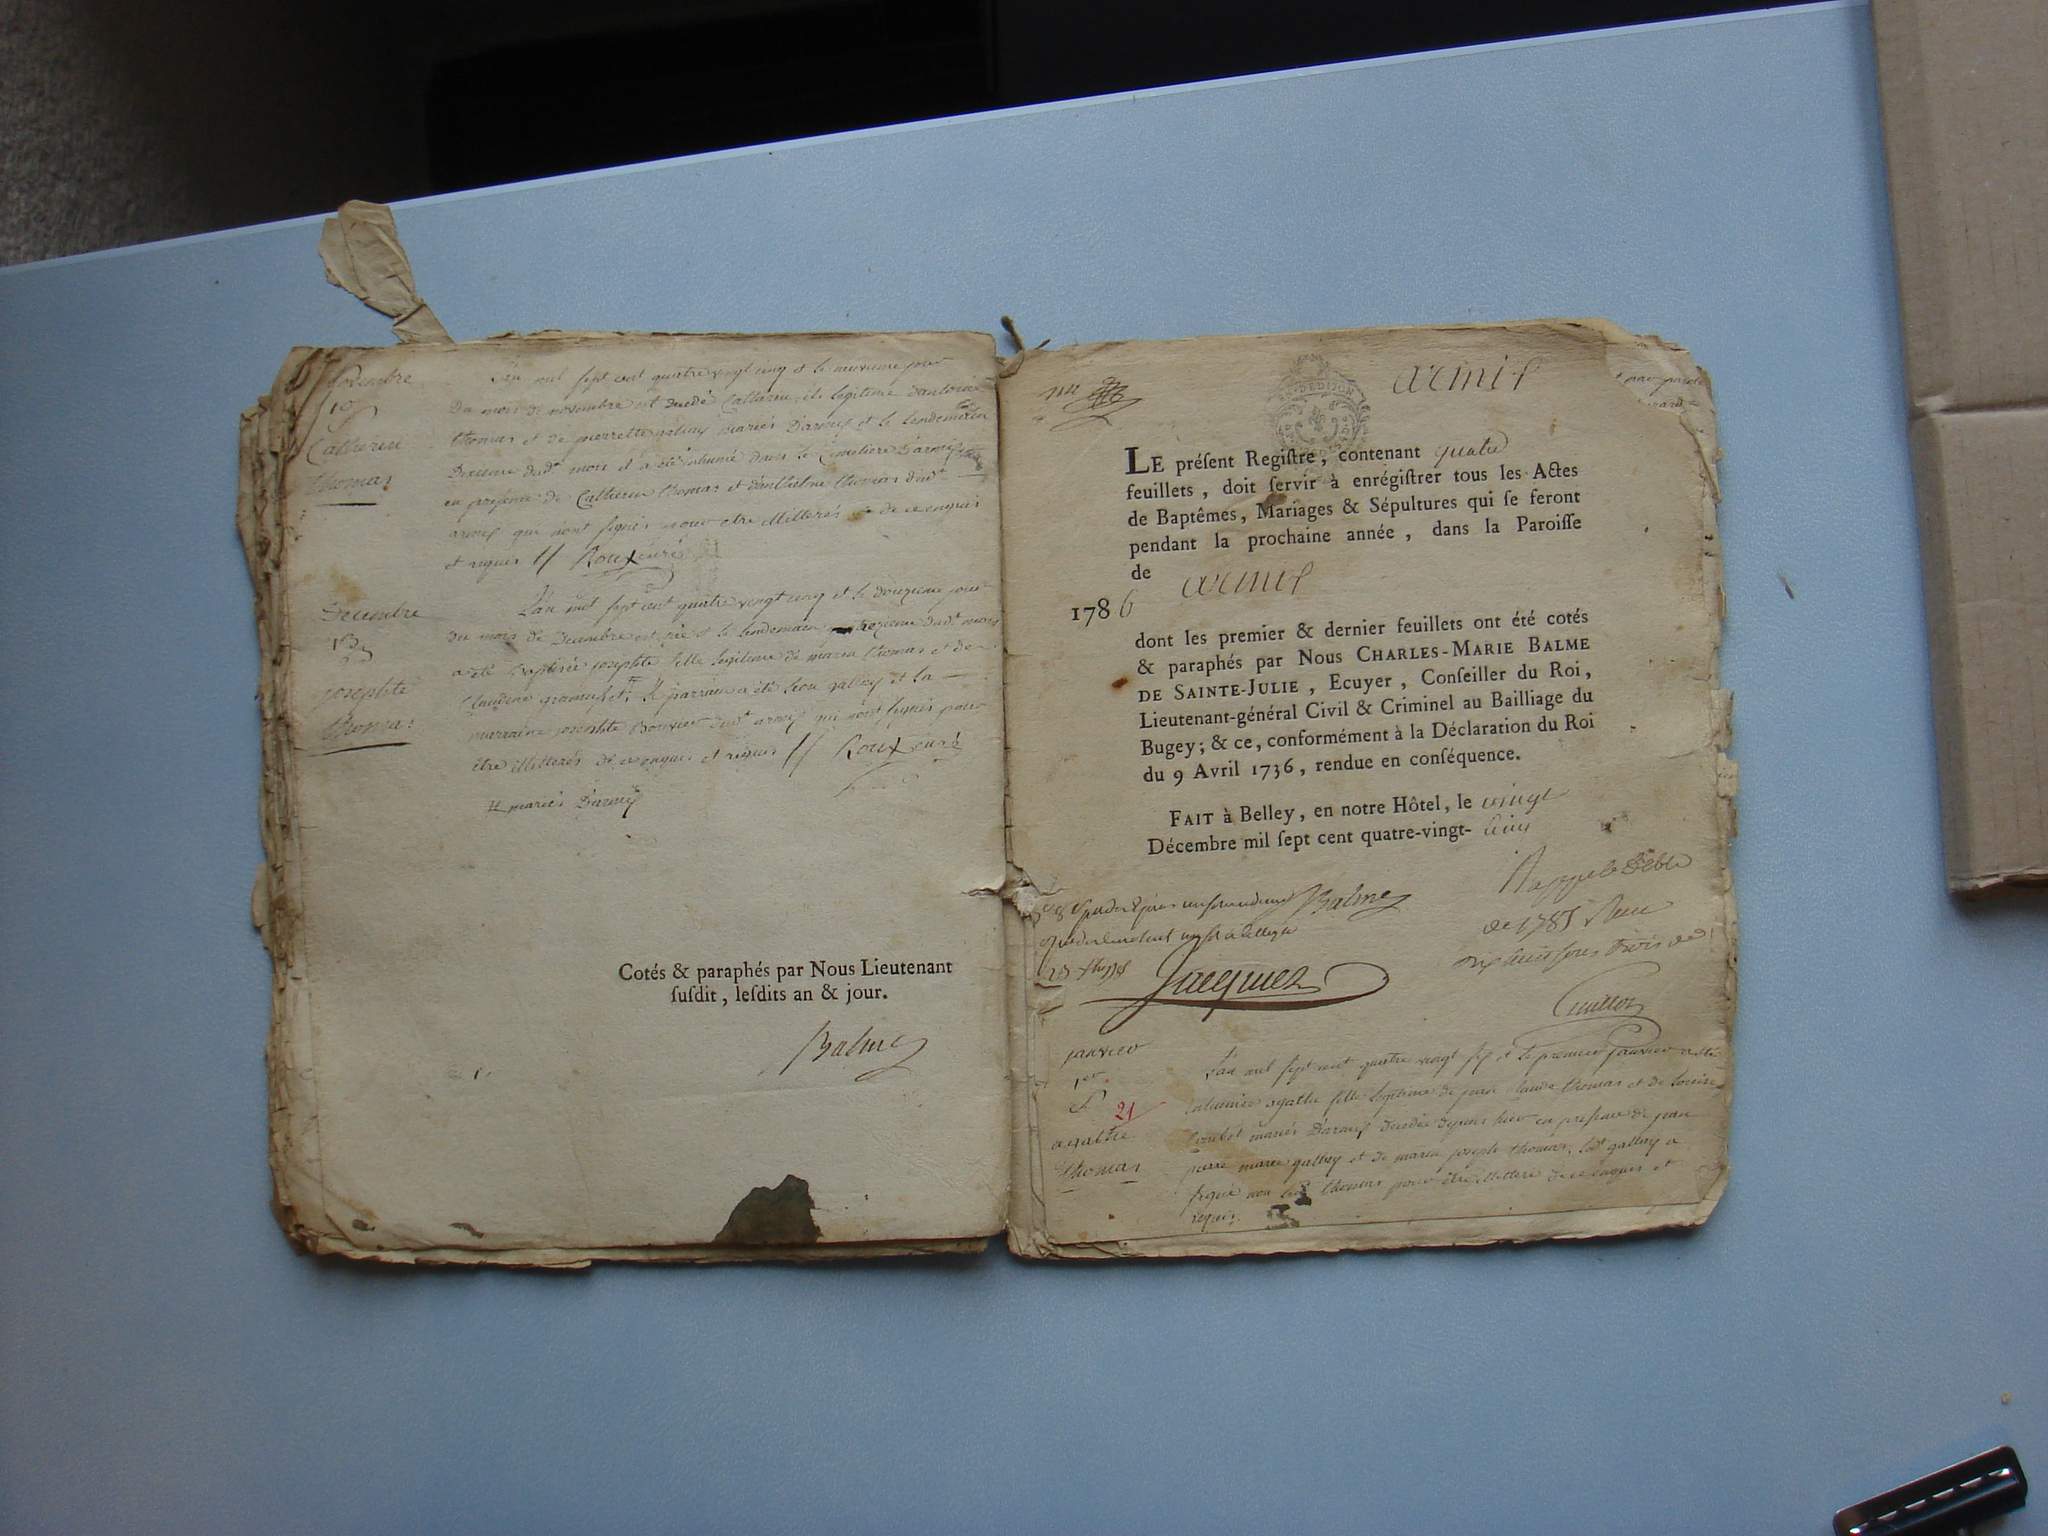 Novembre
10
Catherin
thomas
L'an mil sept cent quatre vingt cinq et le neuvieme jour
du mois de novembre est decedé Catherin fils legitime d'antoine
thomas et de pierrette galley mariés d'armis et le lendemain
dixieme dudt mois il a été inhumé dans le Cimetiere d'armis
en presence de Catherin thomas et d'anthelme thomas dudt
armis qui n'ont signés pour etre illiterés de ce enquis
et requis // Roux curé
Decembre
13
josephte
thomas
L'an mil sept cent quatre vingt cinq et le douzieme jour
du mois de decembre est née et le lendemain trezieme dudt mois
a été baptisée josephte fille legitime de marin thomas et de
Claudine # le parrain a été galley et la
marraine josephte Bouvier dudt armis qui n'ont signés pour
être illiterés de ce enquis et requis // Roux curé
# mariés d'armis
Cotés & paraphés par Nous Lieutenant
ſuſdit, leſdits an & jour.
Balme
armis
LE préſent Regiſtre, contenant quatre
feuillets, doit ſervir à enrégiſtrer tous les Actes
de Baptêmes, Mariages & Sépultures qui ſe feront
pendant la prochaine année, dans la Paroiſſe
de armis
1786
dont les premier & dernier feuillets ont été cotés
& paraphés par Nous CHARLES-MARIE BALME
DE SAINTE-JULIE, Ecuyer, Conſeiller du Roi,
Lieutenant-général Civil & Criminel au Bailliage du
Bugey; & ce, conformément à la Déclaration du Roi
du 9 Avril 1736, rendue en conſéquence.
FAIT à Belley, en notre Hôtel, le vingt
Décembre mil ſept cent quatre-vingt- cinq
Balme
de 1785
dix huit sous trois
Jacquer
janvier
1er
21
agathe
thomas
L'an mil sept cent quatre vingt six et le premier janvier a été
inhumée agathe fille legitime de jean claude thomas et de Louise
mariés d'armis decedée depuis hier en presence de jean
pierre marie galley et de marin joseph thomas, ledt galley a
signé non led thomas pour être illiteré de ce enquis et
requis.